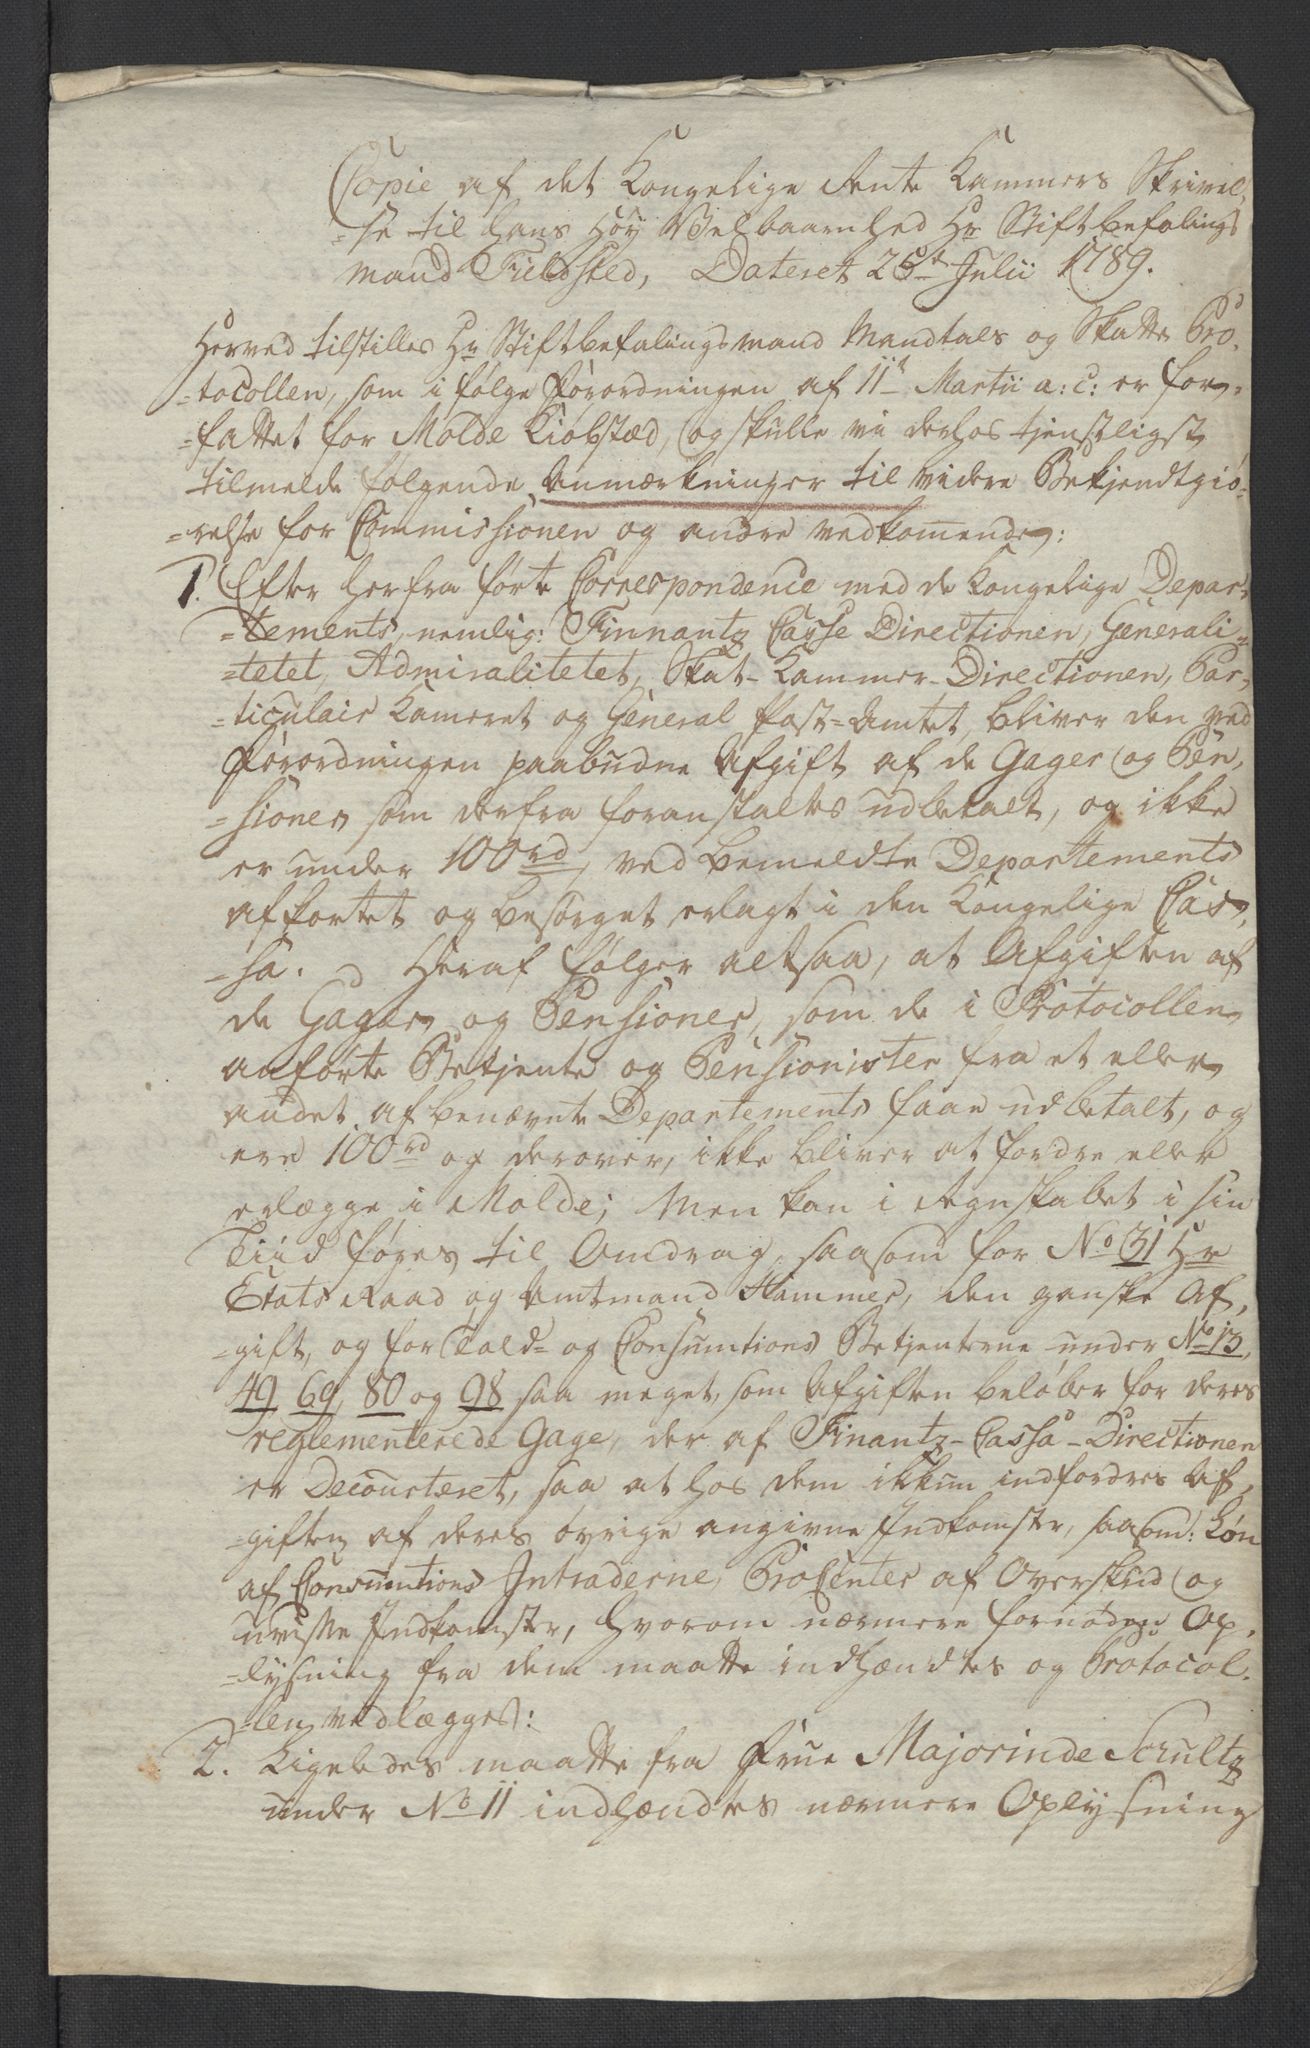 Copie af det Kongelige Rente Kammers Skrivel,
=se til hans Høy Velbaarnhed Hr Stiftbefalings
mand Fieldsted, Dateret 25t Julii 1789.
Herved tilstilles Hr Stiftbefalingsmand Mandtals og Skatte Pro,
=tocollen, som i følge Forordningen af 11t Martii a: c: er for,
=fattet for Molde Kiøbstæd, og skulle vi derhos tjenstligst
tilmelde følgende Anmærkninger til videre Bekjendtgiø,
=relse for Commissionen og andre vedkomende:
1. Efter herfra førte Correspondence med de Kongelige Depar,
=tements, nemlig: Finnantz Casse Directionen, Generali,
=tetet, Admiralitetet, Skat-Kammer-Directionen, Par,
=ticulair Kameret og General Post=Amtet, bliver den ved
Forordningen paabudne Afgift af de Gager og Pen,
=sioner som derfra foranstaltes udbetalt, og ikke
er under 100rd, ved bemeldte Departements
afkortet og besørget erlagt i den Kongelige Cas,
=sa. Heraf følger altsaa, at Afgiften af
de Gager og Pensioner, som de i Protocollen
anførte Betjente og Pensionister fra et eller
andet af benævnte Departements faae udbetalt, og
ere 100rd og derover, ikke bliver at fordre eller
erlægge i Molde; Men kan i Regnskabet i sin
Tiid føres til Omdrag, saasom for No 31 Hr
Etats Raad og Amtmand Hammer, den ganske Af,
=gift, og for Told= og Consumtions Betjenterne under No 13,
49, 69, 80 og 98 saa meget, som Afgiften beløber for deres
reglementerede Gage, der af Finantz-Cassa-Directionen
er Decourteret, saa at hos dem ikkun indfordres Af,
=giften af deres øvrige angivne Indkomster, saasom: Løn
af Consumtions Intraderne, Procenter af Overskud og
uvisse Indkomster, hvorom nærmere fornøden Op,
=lysning fra dem maatte indhændtes og Protocol,
=len vedlægges:
2. Ligeledes maatte fra Frue Majorinde Schultz
under No 11 indhændes nærmere Oplysning